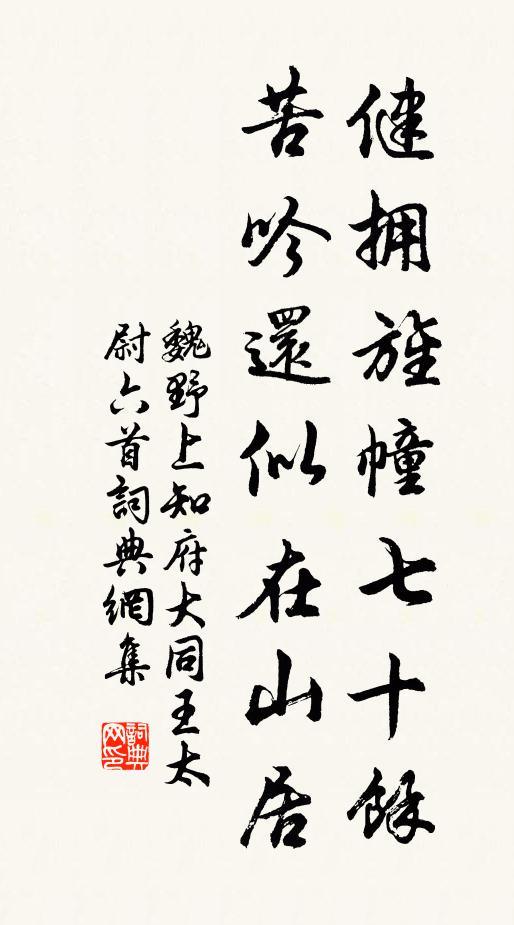 健拥旌幢七十餘
苦吟還似在山居
魏野上知府大同王太
尉六首詞典網集
詞典
网印